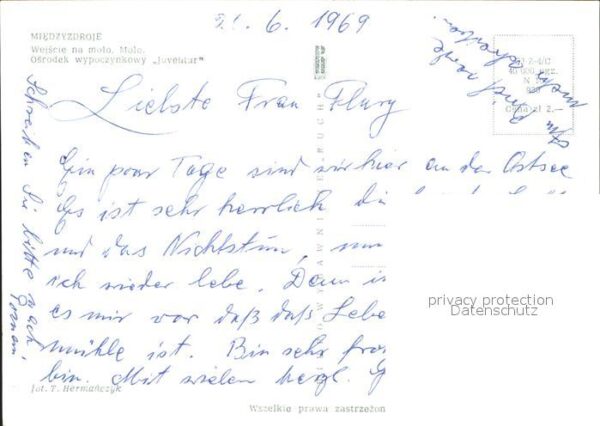 21. 6. 1969
MIĘDZYZDROJE
Wejście na molo. Molo.
Ośrodek wypoczynkowy „Juventur"
Liebste Frau Flury
Ein paar Tage sind wir hier an der Ostsee
Es ist sehr herrlich die
und das Nichtstun, nun
ich wieder lebe. Denn is
es mir vor daß daß Lebe
mühle ist. Bin sehr fro
bin. Mit vielen herzl. G
Schreiben Sie bitte nach
Poznań,
Am Brief werde
schreiben.
Cena zł 2.—
fot. T. Hermańczyk
Wszelkie prawa zastrzeżon
privacy protection
Datenschutz